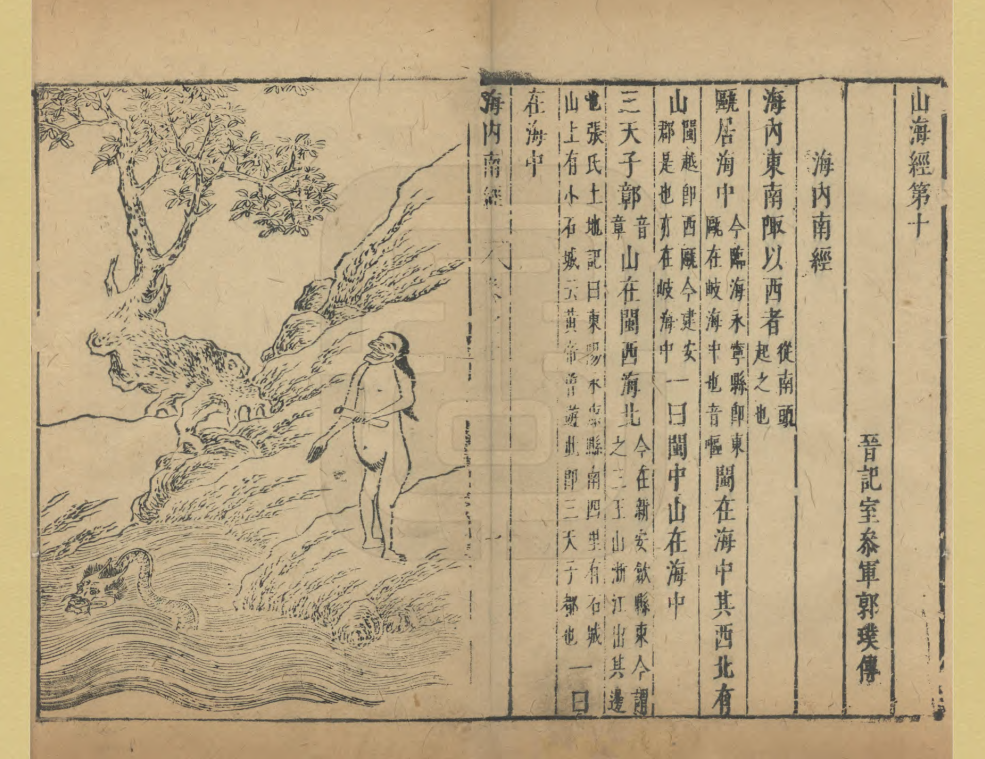 山海經第十
晉記室叅軍郭璞傳
海內南經
海內東南陬以西者從南頭起之也
甌居海中今臨海永寧縣卽東甌在岐海中也音嘔閩在海中其西北有
山閩越卽西甌今建安郡是也亦在岐海中一曰閩中山在海中
三天子鄣音章山在閩西海北今在新安歙縣東今謂之三王山浙江出其邊
也張氏土地記曰東陽永康縣南四里有石城山上有小石城云黃帝曾遊此卽三天子都也一曰
在海中
海內南經